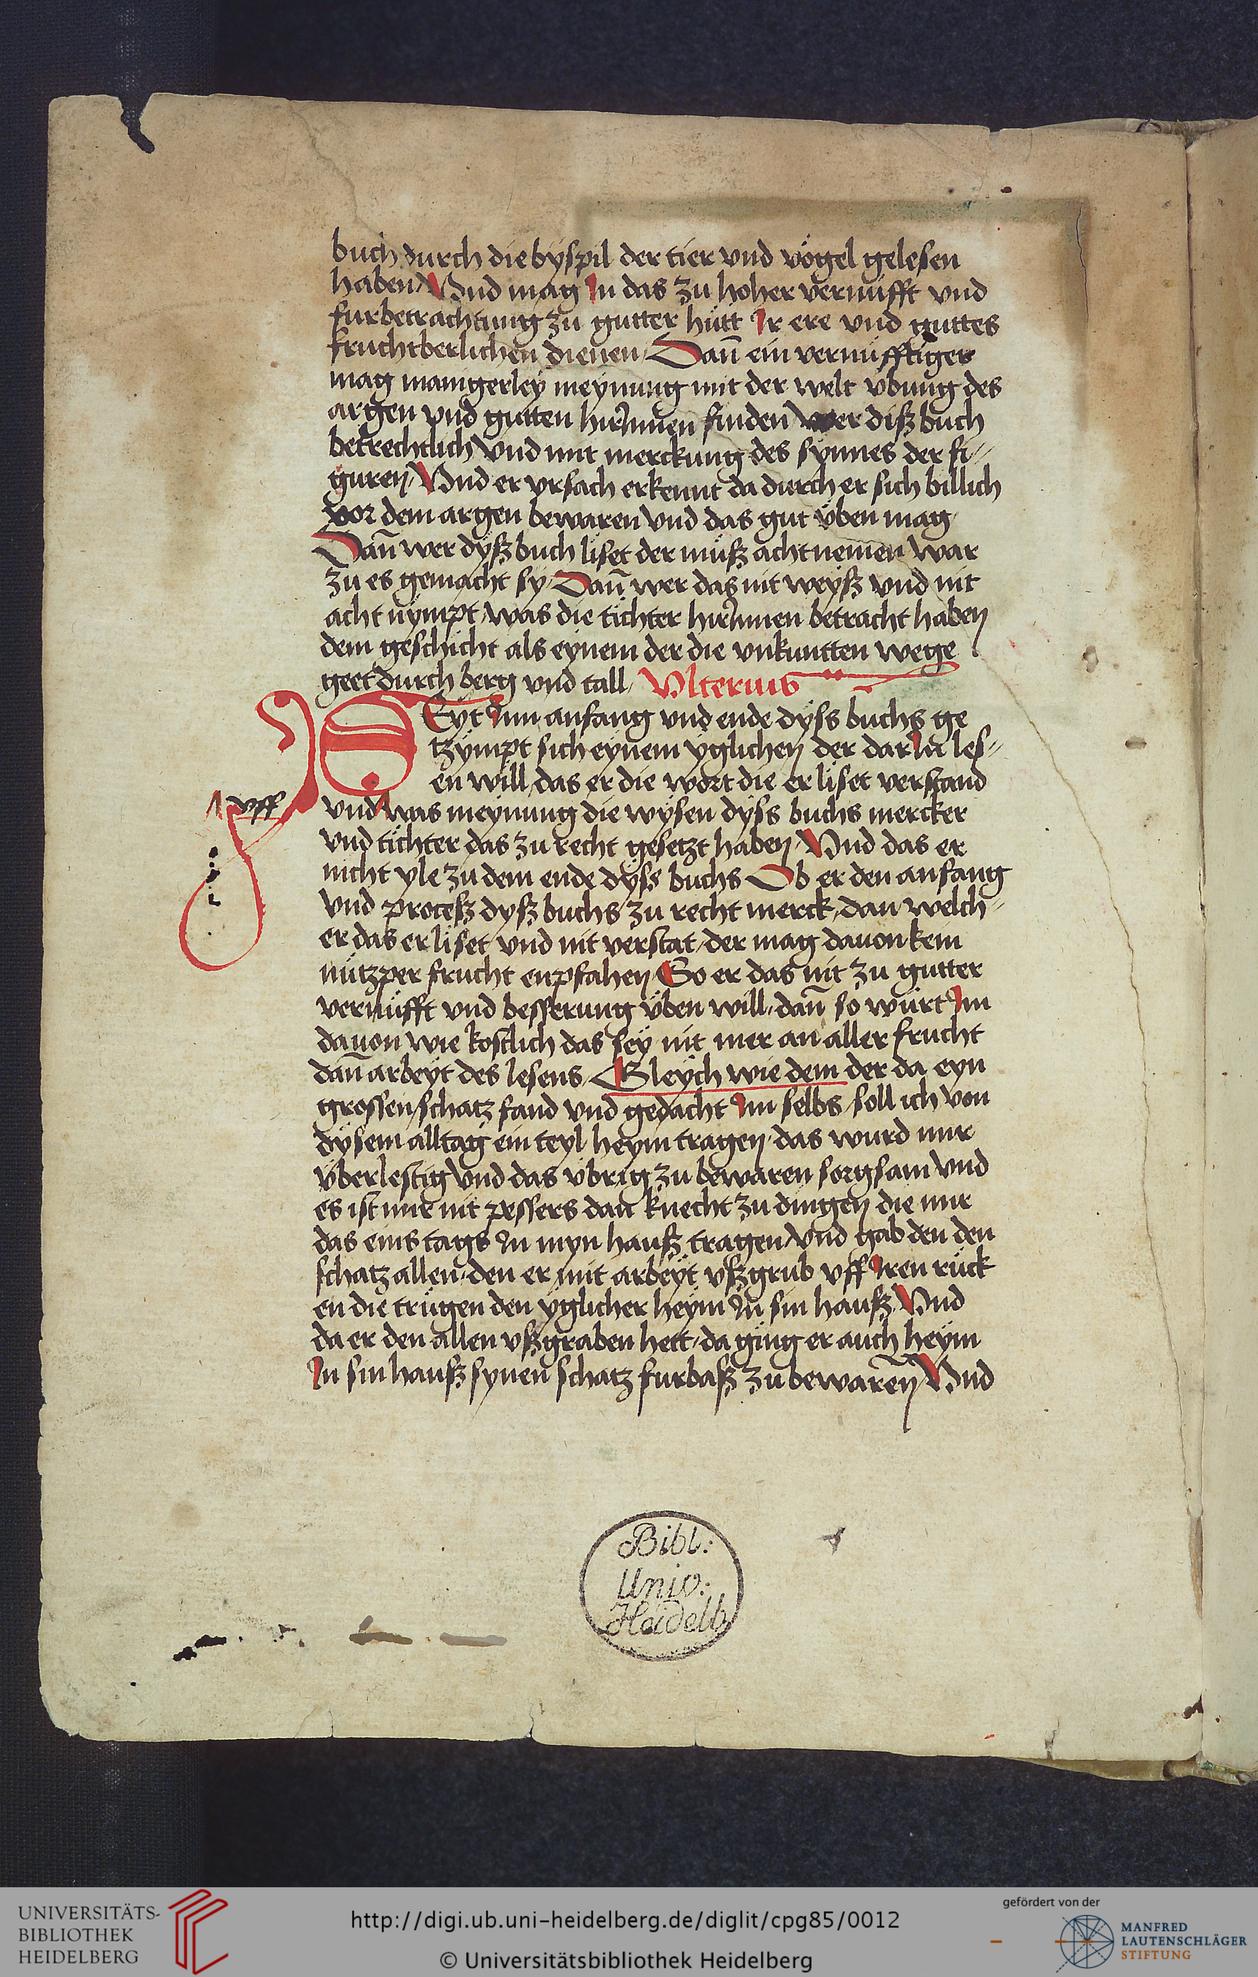 buch durch die byspil der tier vnd vögel gelesen
haben Vnd mag In das zu hoher vernufft vnd
furbetrachtung zu gutter hütt Ir ere vnd guttes
fruchtberlichen dienen Dañ ein vernüfftiger
mag mamgerley meynung mit der welt vbung des
argen vnd gutten hirInnen finden wer diß buch
betrechtlich vnd mit merckung des synnes der fi-
guren Vnd er vrsach erkennt da durch er sich billich
vor dem argen bewaren vnd das gut üben mag
Dañ wer dyß buch liset der müß acht nemen war
zu es gemacht sy Dañ wer das nit weyß vnd nit
acht nympt was die tichter hirInnen betracht haben
dem geschicht als eynem der die vnkuntten wege
geet durch berg vnd tall Vlterius
SEyt Inn anfang vnd ende dyss buchs ge
tzympt sich eynem yglichen der darIn les-
en will das er die wort die er liset verstand
vnd was meynung die wysen dyss buchs mercker
vff
vnd tichter das zu recht gesetzt haben Vnd das er
nicht yle zu dem ende dyss buchs Ob er den anfang
vnd proceß dyß buchs zu recht merck dan welch-
er das er liset vnd nit verstat der mag dauon kein
nützper frucht enpfahen So er das nit zu gutter
vernüfft vnd besserung üben will dañ so würt Im
dauon wie kostlich das sey nit mer an aller frucht
dañ arbeyt des lesens Gleych wie dem der da eyn
grossen schatz fand vnd gedacht Im selbs soll ich von
dysem alltag ein teyl heym tragen das wurd mir
überlestig vnd das übrig zu bewaren sorgsam vnd
es ist mir nit pessers dan knecht zu dingen die mir
das eins tags In myn hauß tragen vnd gab den den
schatz allen den er mit arbeyt vßgrub vff Iren rück
en die trügen den yglicher heym In sin hauß Vnd
da er den allen vßgraben hett da ging er auch heym
In sin hauß synen schatz furbaß zu bewaren Vnd
Bibl:
Univ:
Heidelb
UNIVERSITÄTS-
BIBLIOTHEK
HEIDELBERG
http://digi.ub.uni-heidelberg.de/diglit/cpg85/0012
© Universitätsbibliothek Heidelberg
gefördert von der
MANFRED
LAUTENSCHLÄGER
STIFTUNG